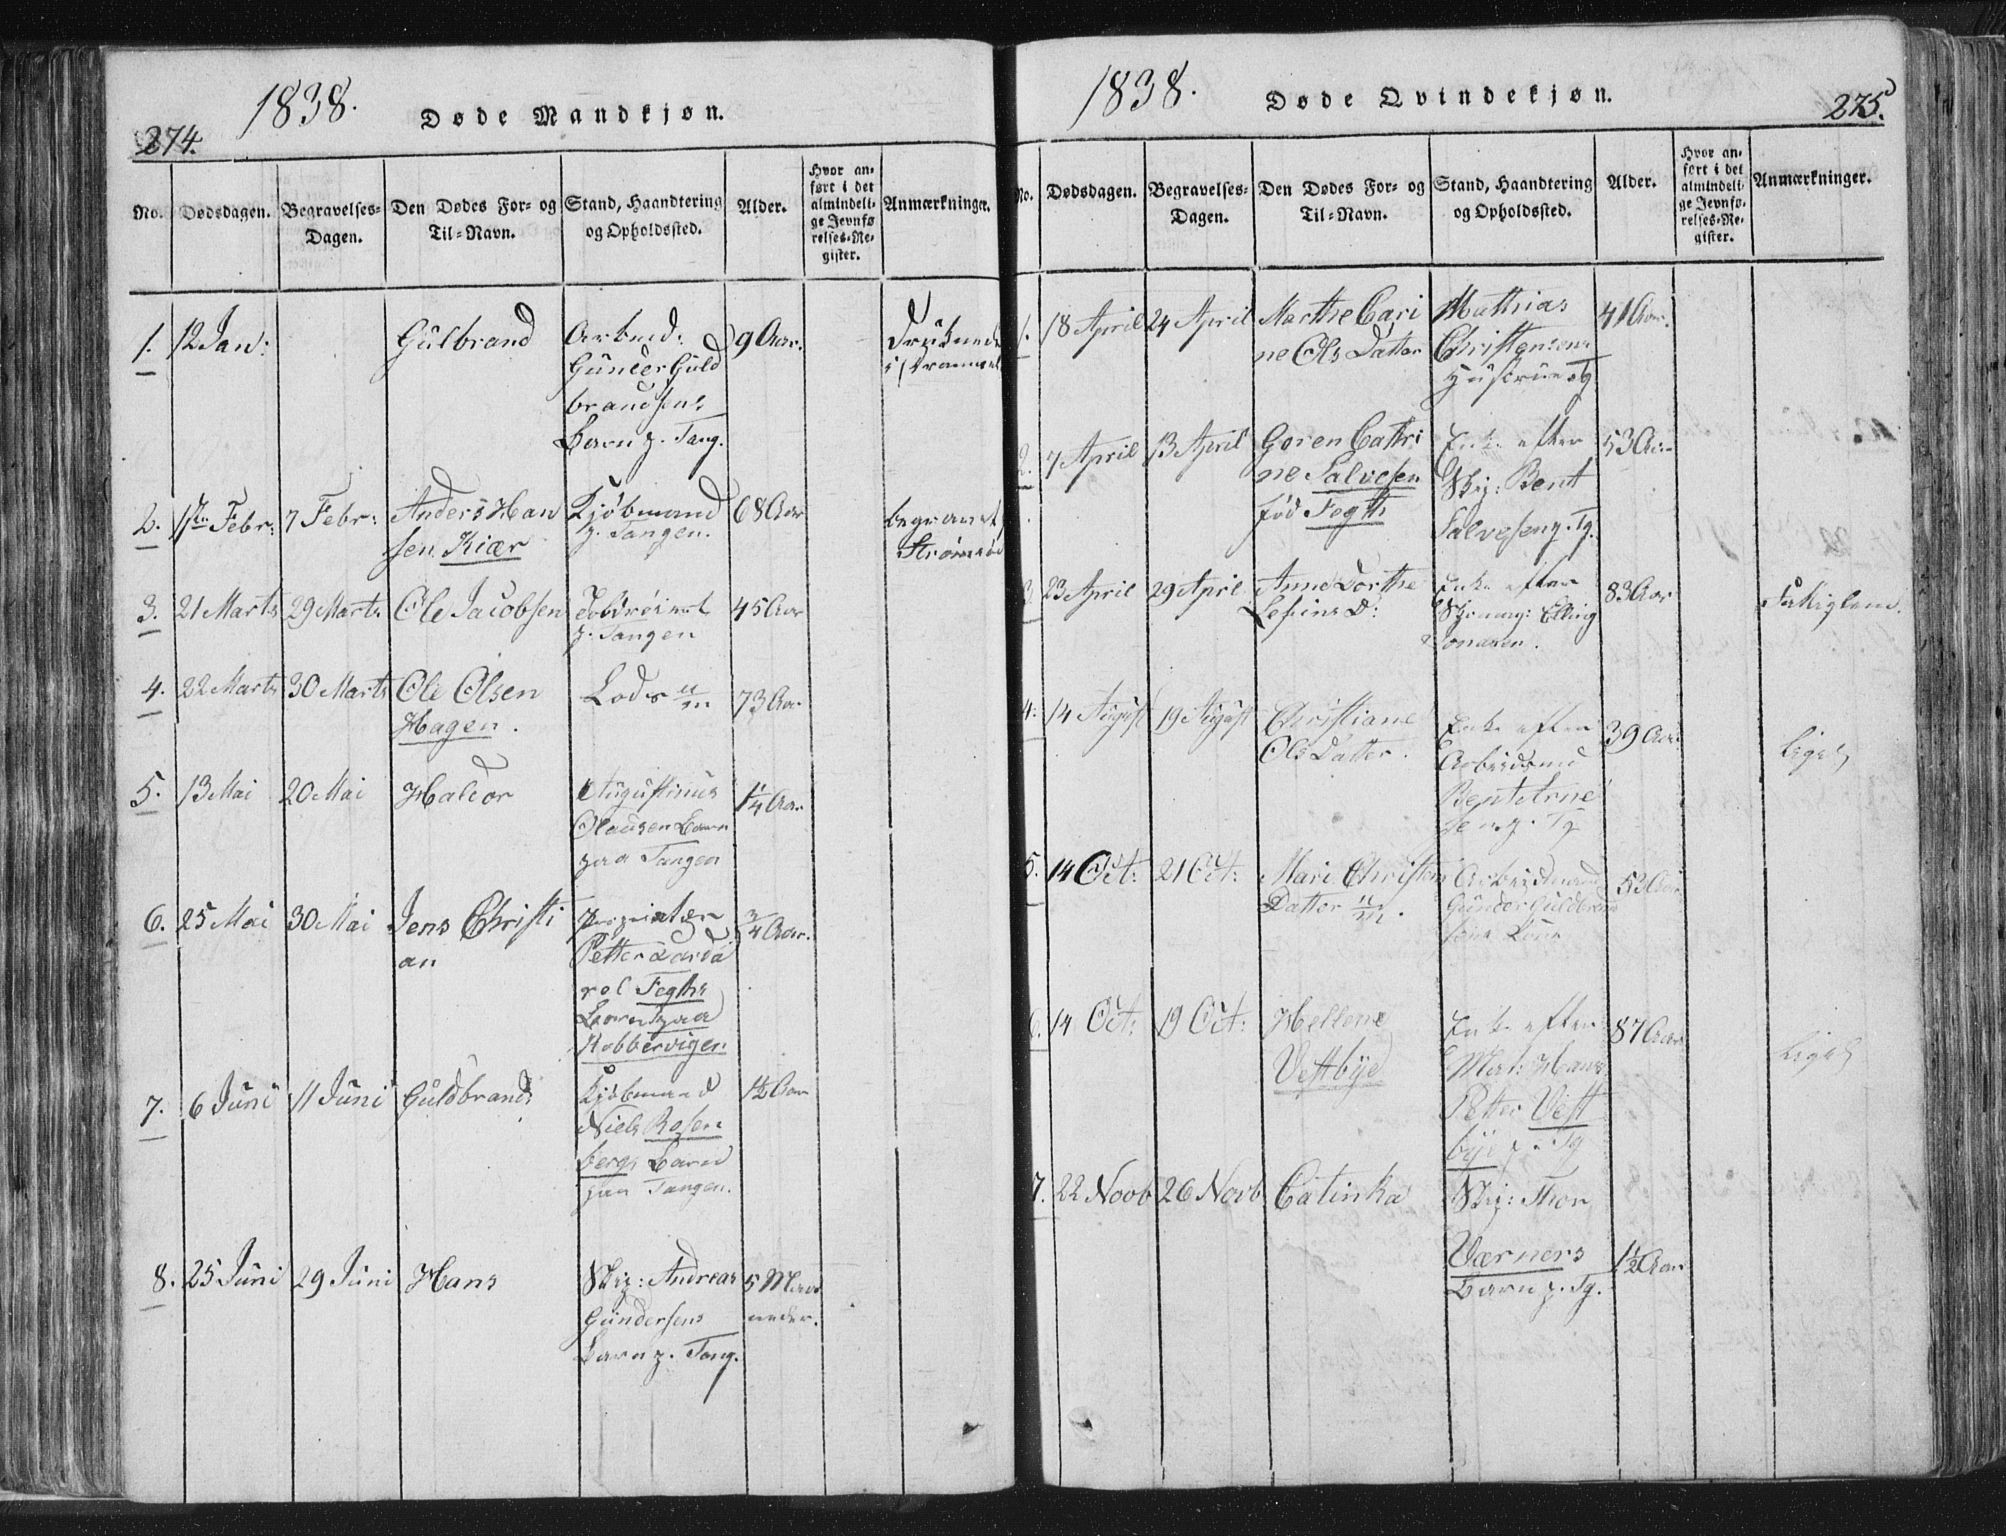 1838.
Døde Mandkjøn.
274.
No.
Dødsdagen.
Begravelses-
Dagen.
Den Dødes For- og
Til-Navn.
Stand, Haandtering
og Opholdssted.
Alder.
Hvor an-
ført i det
almindeli-
ge Jevnfø
relses-Re-
gister.
Anmærkninger.
1.
12 Jan:
Gulbrand
Arbmd:
Gunder Guld
brandsens
Barn p. Tang.
9 Aar.
Druknede
2.
1ste Febr:
7 Febr:
Anders Han
sen Kiær
Kjøbmand
p. Tangen.
68 Aar
begravet
3.
21 Marts
29 Marts
Ole Jacobsen
p. Tangen
45 Aar
4.
22 Marts
30 Marts
Ole Olsen
Hagen.
Lods
73 Aar
5.
13 Mai
20 Mai
Haldor
Augustinus
Olausen Barn
paa Tangen
1¼ Aar
6.
25 Mai
30 Mai
Jens Christi
an
Proprietær
Petter
Fegths
Barn paa
Kobbervigen
¾ Aar.
7.
6 Juni
11 Juni
Guldbrand
Kjøbmand
Niels Rosen
bergs Barn
paa Tangen.
1½ Aar
8.
25 Juni
29 Juni
Hans
Skip: Andreas
Gundersens
Barn p. Tang.
5 Maa
neder.
1838.
Døde Qvindekjøn.
275.
No.
Dødsdagen.
Begravelses-
Dagen.
Den Dødes For- og
Til-Navn.
Stand, Haandtering
og Opholdssted.
Alder.
Hvor an-
ført i det
almindeli-
ge Jevnfø-
relses-Re-
gister.
Anmærkninger.
1.
18 April
24 April
Marthe Cari
ne Ols Datter
Mathias
Christensens
Hustrue
41 Aar.
2.
7 April
13 April
Goren Cathri
ne Salvesen
fød Fegth
Enke efter
Skip: Bent
Salvesen p. Tg.
53 Aar
3.
23 April
29 April
Anne Dorthe
Enke efter
Elling
83 Aar
Fattiglem.
4.
14 August
19 August
Christiane
Ols Datter.
Enke efter
Arbeidsmd
Bent Arne
sen p. Tg
39 Aar
5.
14 Oct:
21 Oct:
Mari Christens
Datter
Arbeidsmand
Gunder Guldbrand
sens Kone
53 Aar
6.
14 Oct:
19 Oct:
Hellene
Vestbye
Enke efter
Mat: Hans
Petter Vest
bye p. Tg
87 Aar
7.
22 Novb
26 Novb
Catinka
Skip: Thor
Værners
Barn p. Tg.
1½ Aar